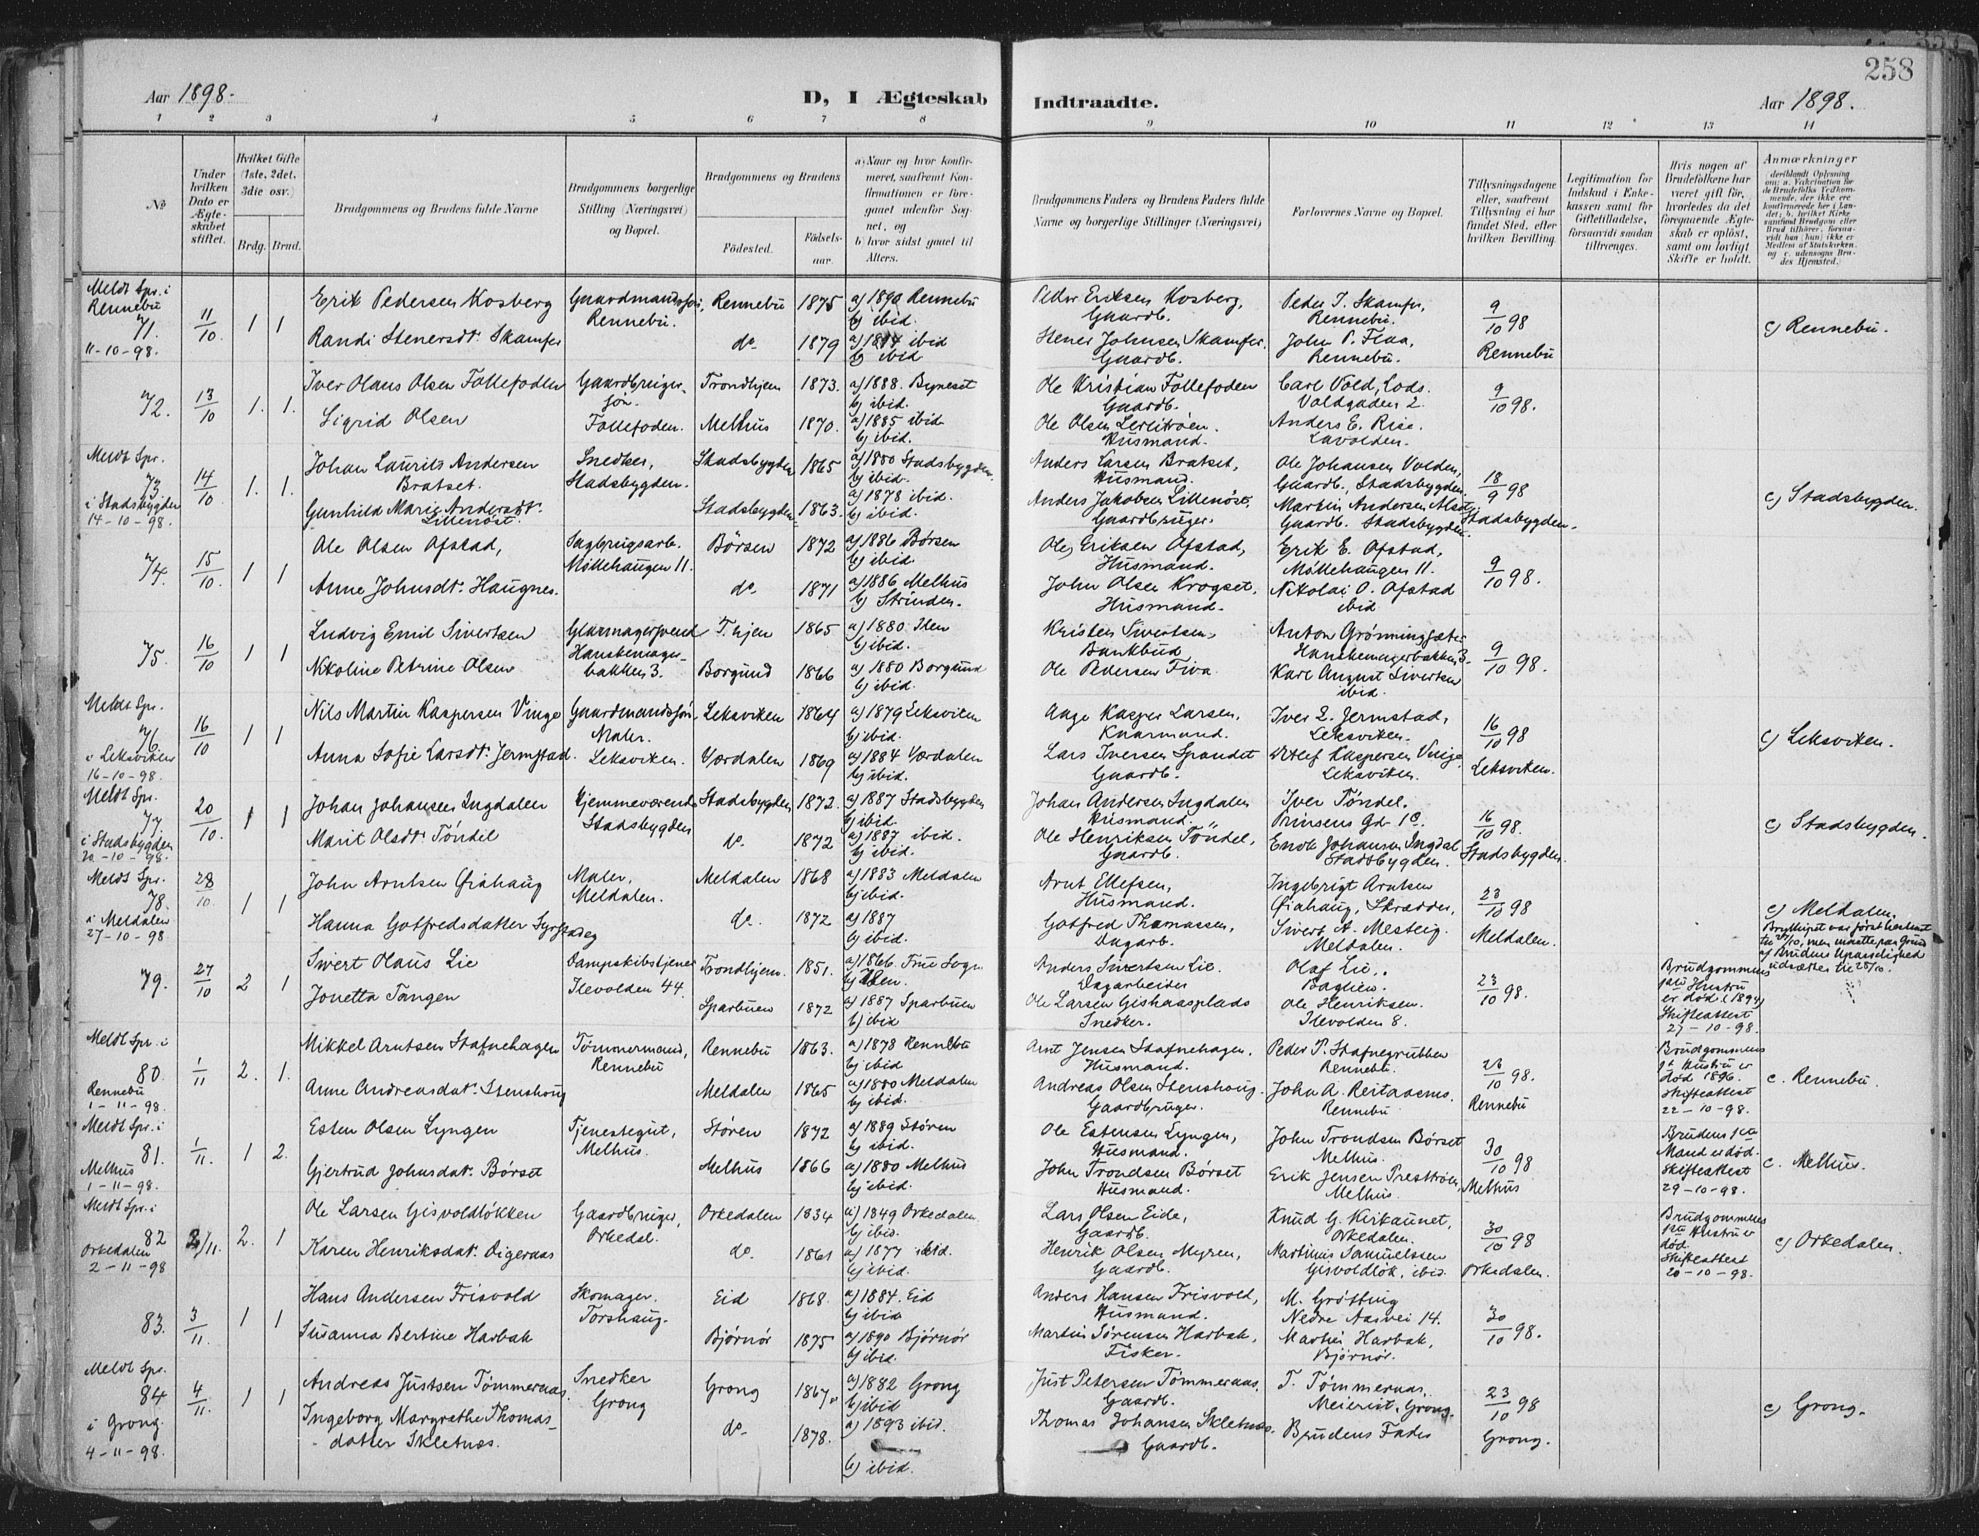 258
Aar 1898.
D, I Ægteskab Indtraadte.
Aar 1898.
1 2 3 4 5 6 7 8 9 10 11 12 13 14
No
Under hvilken Dato er Ægteskabet stiftet.
Hvilket Gifte (1ste, 2det, 3die osv.)
Brdg. Brud.
Brudgommens og Brudens fulde Navne
Brudgommens borgerlige Stilling (Næringsvei) og Bopæl.
Brudgommens og Brudens
Födested.
Födselsaar.
a) Naar og hvor konfirmeret, saafremt Konfirmationen er foregaaet udenfor Sognet, og
b) hvor sidst gaaet til Alters.
Brudgommens Faders og Brudens Faders fulde Navne og borgerlige Stillinger (Næringsvei)
Forlovernes Navne og Bopæl.
Tillysningsdagene eller, saafremt Tillysning ei har fundet Sted, efter hvilken Bevilling.
Legitimation for Indskud i Enkekassen samt for Giftetilladelse, forsaavidt saadan tiltrænges.
Hvis nogen af Brudefolkene har været gift før, hvorledes da det foregaaende Ægteskab er oplöst, samt om lovligt Skifte er holdt.
Anmærkninger (deriblandt Oplysning om: a. Vakcination for de Brudefolks Vedkommende, der ikke ere konfirmerede her i Landet; b. hvilket Kirkesamfund Brudgom eller Brud tilhører, forsaavidt han (hun) ikke er Medlem af Statskirken, og c. udensogns Brudes Hjemsted.)
Meldt Spr. i Rennebu
71.
11-10-98.
11/10 1 1
Erik Pedersen Kosberg
Gaardmandssøn, Rennebu.
Rennebu 1875 a) 1890 Rennebu b) ibid.
Peder Eriksen Kosberg, Gaardb.
Peder T. Skamfer, Rennebu.
9/10 98 Rennebu
c) Rennebu.
Randi Stenersdt. Skamfer
do. 1879 ibid b) ibid
Stener Johnsen Skamfer. Gaardb.
John P. Flaa, Rennebu.
72. 13/10 1. 1.
Iver Olaus Olsen Follefoden
Gaardbrugersøn. Follefoden.
Trondhjem 1873. a) 1888. Byneset b) ibid.
Ole Kristian Follefoden Gaardb.
Carl Vold, Lods. Voldgaden 2.
9/10 98.
Sigrid Olsen
Melhus 1870. a) 1885 ibid b) ibid.
Ole Olsen Husmand.
Anders E. Rise.
Meldt Spr.
73. 14/10 1. 1.
i Stadsbygden 14-10-98.
Johan Laurits Andersen Bratset.
Snedker, Stadsbygden.
Stadsbygden 1865 a) 1880 Stadsbygden. b) ibid.
Anders Larsen Bratset, Husmand.
Ole Johansen Volden, Gaardb., Stadsbygden.
18/9 98 Stadsbygden.
c) Stadsbygden.
Gunhild Marie Andersdt. Lillenöst.
Stadsbygden 1863. a) 1878 ibid. b) ibid.
Anders Jakobsen Lillenöst, Gaardbruger.
Martin Andersen Gaardb. Stadsbygden.
74. 15/10 1 1
Ole Olsen Ofstad,
Sagbrugsarb. Möllehaugen 11.
Börsen 1872 a) 1886 Börsen b) ibid.
Ole Eriksen Ofstad, Husmand.
Erik E. Ofstad, Möllehaugen 11.
9/10 98.
Anne Johnsdt. Haugnes.
do. 1871 a) 1886 Melhus b) Strinden.
John Olsen Krogset, Husmand.
Nikolai O. Ofstad ibid
75. 16/10 1 1
Ludvig Emil Sivertsen
Glarmagersvend Hanskemagerbakken 3.
T.hjem 1865 a) 1880 Ilen b) ibid.
Kristen Sivertsen, Bankbud
Anton Grönningsæter Hanskemagerbakken 3.
9/10 98.
Nikoline Petrine Olsen
Borgund 1866 a) 1880 Borgund b) ibid.
Ole Pedersen Fiva.
Karl August Sivertsen ibid.
Meldt Spr.
76. 16/10 1 1
i Leksviken 16-10-98.
Nils Martin Kaspersen Vinge
Gaardmandssøn, Maler. Leksviken.
Leksviken 1864 a) 1879 Leksviken b) ibid.
Aage Kasper Larsen,
Iver L. Jermstad, Leksviken.
16/10 98 Leksviken.
c) Leksviken.
Anna Sofie Larsdt. Jermstad.
Værdalen 1869 a) 1884 Værdalen b) ibid.
Lars Iversen Spandet Gaardb.
Kaspersen Vinge Leksviken.
Meldt Spr.
77 20/10. 1 1
i Stadsbygden 20-10-98.
Johan Johansen Ingdalen
Hjemmeværende Stadsbygden
Stadsbygden 1872. a) 1887 Stadsbygden b) ibid.
Johan Andersen Ingdalen Husmand.
Iver Töndel. Prinsens Gd. 1c.
16/10 98. Stadsbygden.
c) Stadsbygden.
Marit Olsdt. Töndel
do. 1872 a) 1887 ibid. b) ibid.
Ole Henriksen Töndel, Gaardb.
Enok Johansen Ingdal Stadsbygden.
Meldt Spr.
78. 28/10. 1 1
i Meldalen 27-10-98.
John Arntsen Øiahaug
Maler, Meldalen.
Meldalen 1868 a) 1883 Meldalen b) ibid.
Arnt Ellefsen, Husmand.
Ingebrigt Arntsen Øiahaug, Skrædder,
23/10 98 Meldalen.
c) Meldalen.
Bryllupet var först bestemt til 27/10, men maatte paa Grund af Brudens Upasselighed udsættes til 28/10.
Hanna Gotfredsdatter
do. 1872 a) 1887 b) ibid.
Gotfred Thomassen, Dagarb.
Sivert A. Mesteig. Meldalen.
79. 27/10 2 1
Sivert Olaus Lie
Dampskibstjener Ilevolden 44.
Trondhjem. 1851. a) 1866 Frue Sogn b) Ilen.
Anders Sivertsen Lie. Dagarbeider
Olaf Lie,
23/10 98.
Brudgommens 1ste Hustru er død (1894) Skifteattest 27-10-98.
Jonetta Tangen
Sparbuen 1872 a) 1887 Sparbuen b) ibid
Ole Larsen Gishaasplads Snedker.
Ole Henriksen. Ilevolden 8.
Meldt Spr. i
80. 1/11 2. 1.
Rennebu 1-11-98.
Mikkel Arntsen Stafnehagen
Tømmermand, Rennebu
Rennebu 1863. a) 1878 Rennebu b) ibid
Arnt Jensen Stafnehagen, Husmand.
Peder P. Stafnegrubben Rennebu.
23/10 98. Rennebu
Brudgommens Hustru er død 1896. Skifteattest 22-10-98.
c. Rennebu.
Anne Andreasdat. Stenshoug
Meldalen 1865 a) 1880 Meldalen b) ibid.
Andreas Olsen Stenshoug. Gaardbruger.
John A. Reitaasmo. Rennebu
Meldt Spr. i
81. 1/11. 1 2.
Melhus 1-11-98.
Esten Olsen Lyngen
Tjenestegut, Melhus.
Støren 1872 a) 1889 Støren b) ibid.
Ole Estensen Lyngen, Husmand.
John Trondsen Børset Melhus.
30/10 98 Melhus
Brudens 1ste Mand er død. Skifteattest 29-10-98.
c. Melhus.
Gjertrud Johnsdat. Børset
Melhus 1866 a) 1880 Melhus b) ibid.
John Trondsen Børset Husmand.
Erik Jensen Presttrøen, Melhus.
Meldt Spr. i
82 2/11. 2. 1
Orkedalen 2-11-98
Ole Larsen Gisvoldløkken
Gaardbruger, Orkedal.
Orkedalen 1834 a) 1849 Orkedalen b) ibid.
Lars Olsen Eide, Gaardb.
Knud G. Kirkaunet, Orkedalen.
30/10 98 Orkedalen.
Brudgommens 1ste Hustru er død. Skifteattest 20-10-98.
c) Orkedalen.
Karen Henriksdat. Digernæs
do. 1861 a) 1877 ibid. b) ibid.
Henrik Olsen Myren, Gaardb.
Martinus Samuelssen Gisvoldløk, ibid.
83. 3/11. 1 1
Hans Andersen Frisvold
Skomager. Torshaug.
Eid 1868. a) 1884. Eid b) ibid
Anders Hansen Frisvold, Husmand.
M. Grøtting Nedre Aasvei 14.
30/10 98.
Susanna Bertine Harbak
Bjørnør 1875 a) 1890 Bjørnør b) ibid.
Martin Sørensen Harbak, Fisker.
Martin Harbak, Bjørnør.
Meldt Spr.
84 4/11. 1 1
i Grong. 4-11-98.
Andreas Justsen Tømmeraas.
Snedker Grong
Grong 1867. a) 1882 Grong b) ibid
Just Petersen Tømmeraas, Gaardb.
T. Tømmeraas, Meierist, Grong.
23/10 98 Grong.
c) Grong.
Ingeborg Margrethe Thomasdatter Skletnæs.
do. 1878. a) 1893 ibid. b) ibid.
Thomas Johansen Skletnæs. Gaardb.
Brudens Fader